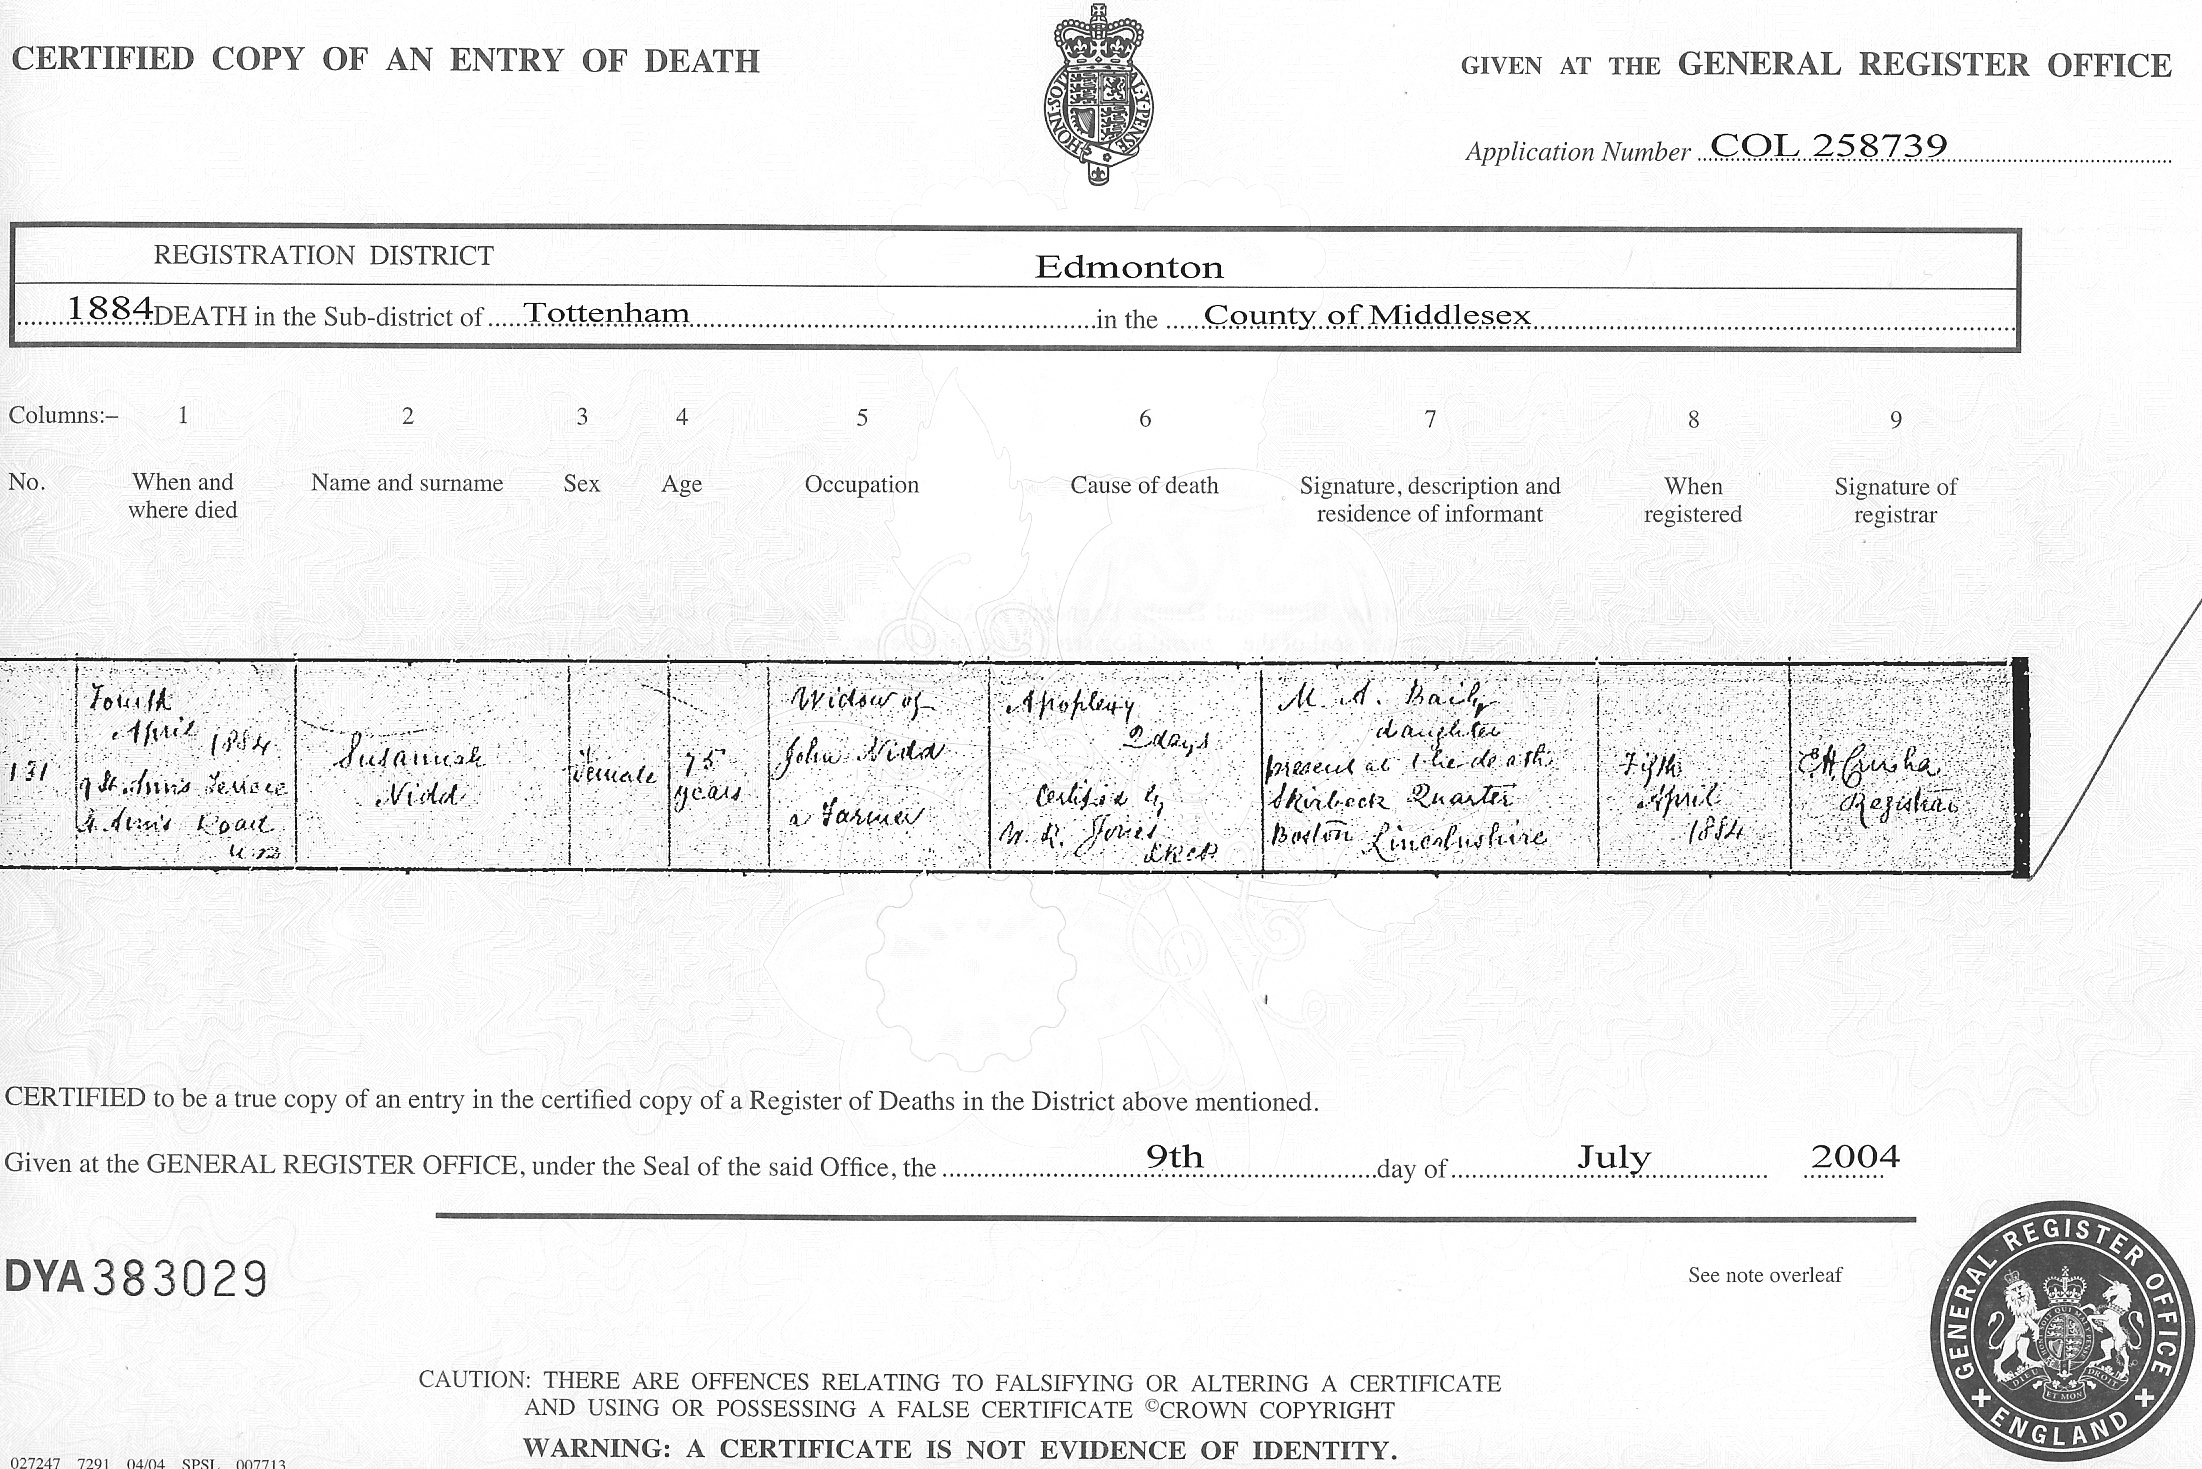 CERTIFIED COPY OF AN ENTRY OF DEATH
GIVEN AT THE GENERAL REGISTER OFFICE
HONI·SOIT AL·Y·PENSE
Application Number COL 258739
REGISTRATION DISTRICT Edmonton
1884 DEATH in the Sub-district of Tottenham in the County of Middlesex
Columns:– 1 2 3 4 5 6 7 8 9
No.
When and
where died
Name and surname
Sex
Age
Occupation
Cause of death
Signature, description and
residence of informant
When
registered
Signature of
registrar
131
Fourth
April
1884
St Ann's Terrace
St Ann's Road
Susannah
Nidd
Female
75
years
Widow of
John Nidd
a Farmer
Apoplexy
2 days
Certified by
W. R. Jones
M. A. Baily
daughter
present at the death
Skirbeck Quarter
Boston Lincolnshire
Fifth
April
1884
Registrar
CERTIFIED to be a true copy of an entry in the certified copy of a Register of Deaths in the District above mentioned.
Given at the GENERAL REGISTER OFFICE, under the Seal of the said Office, the 9th day of July 2004
DYA 383029
See note overleaf
GENERAL REGISTER OFFICE
ENGLAND
DIEU ET MON DROIT
CAUTION: THERE ARE OFFENCES RELATING TO FALSIFYING OR ALTERING A CERTIFICATE
AND USING OR POSSESSING A FALSE CERTIFICATE ©CROWN COPYRIGHT
WARNING: A CERTIFICATE IS NOT EVIDENCE OF IDENTITY.
027247 7291 04/04 SPSL 007713